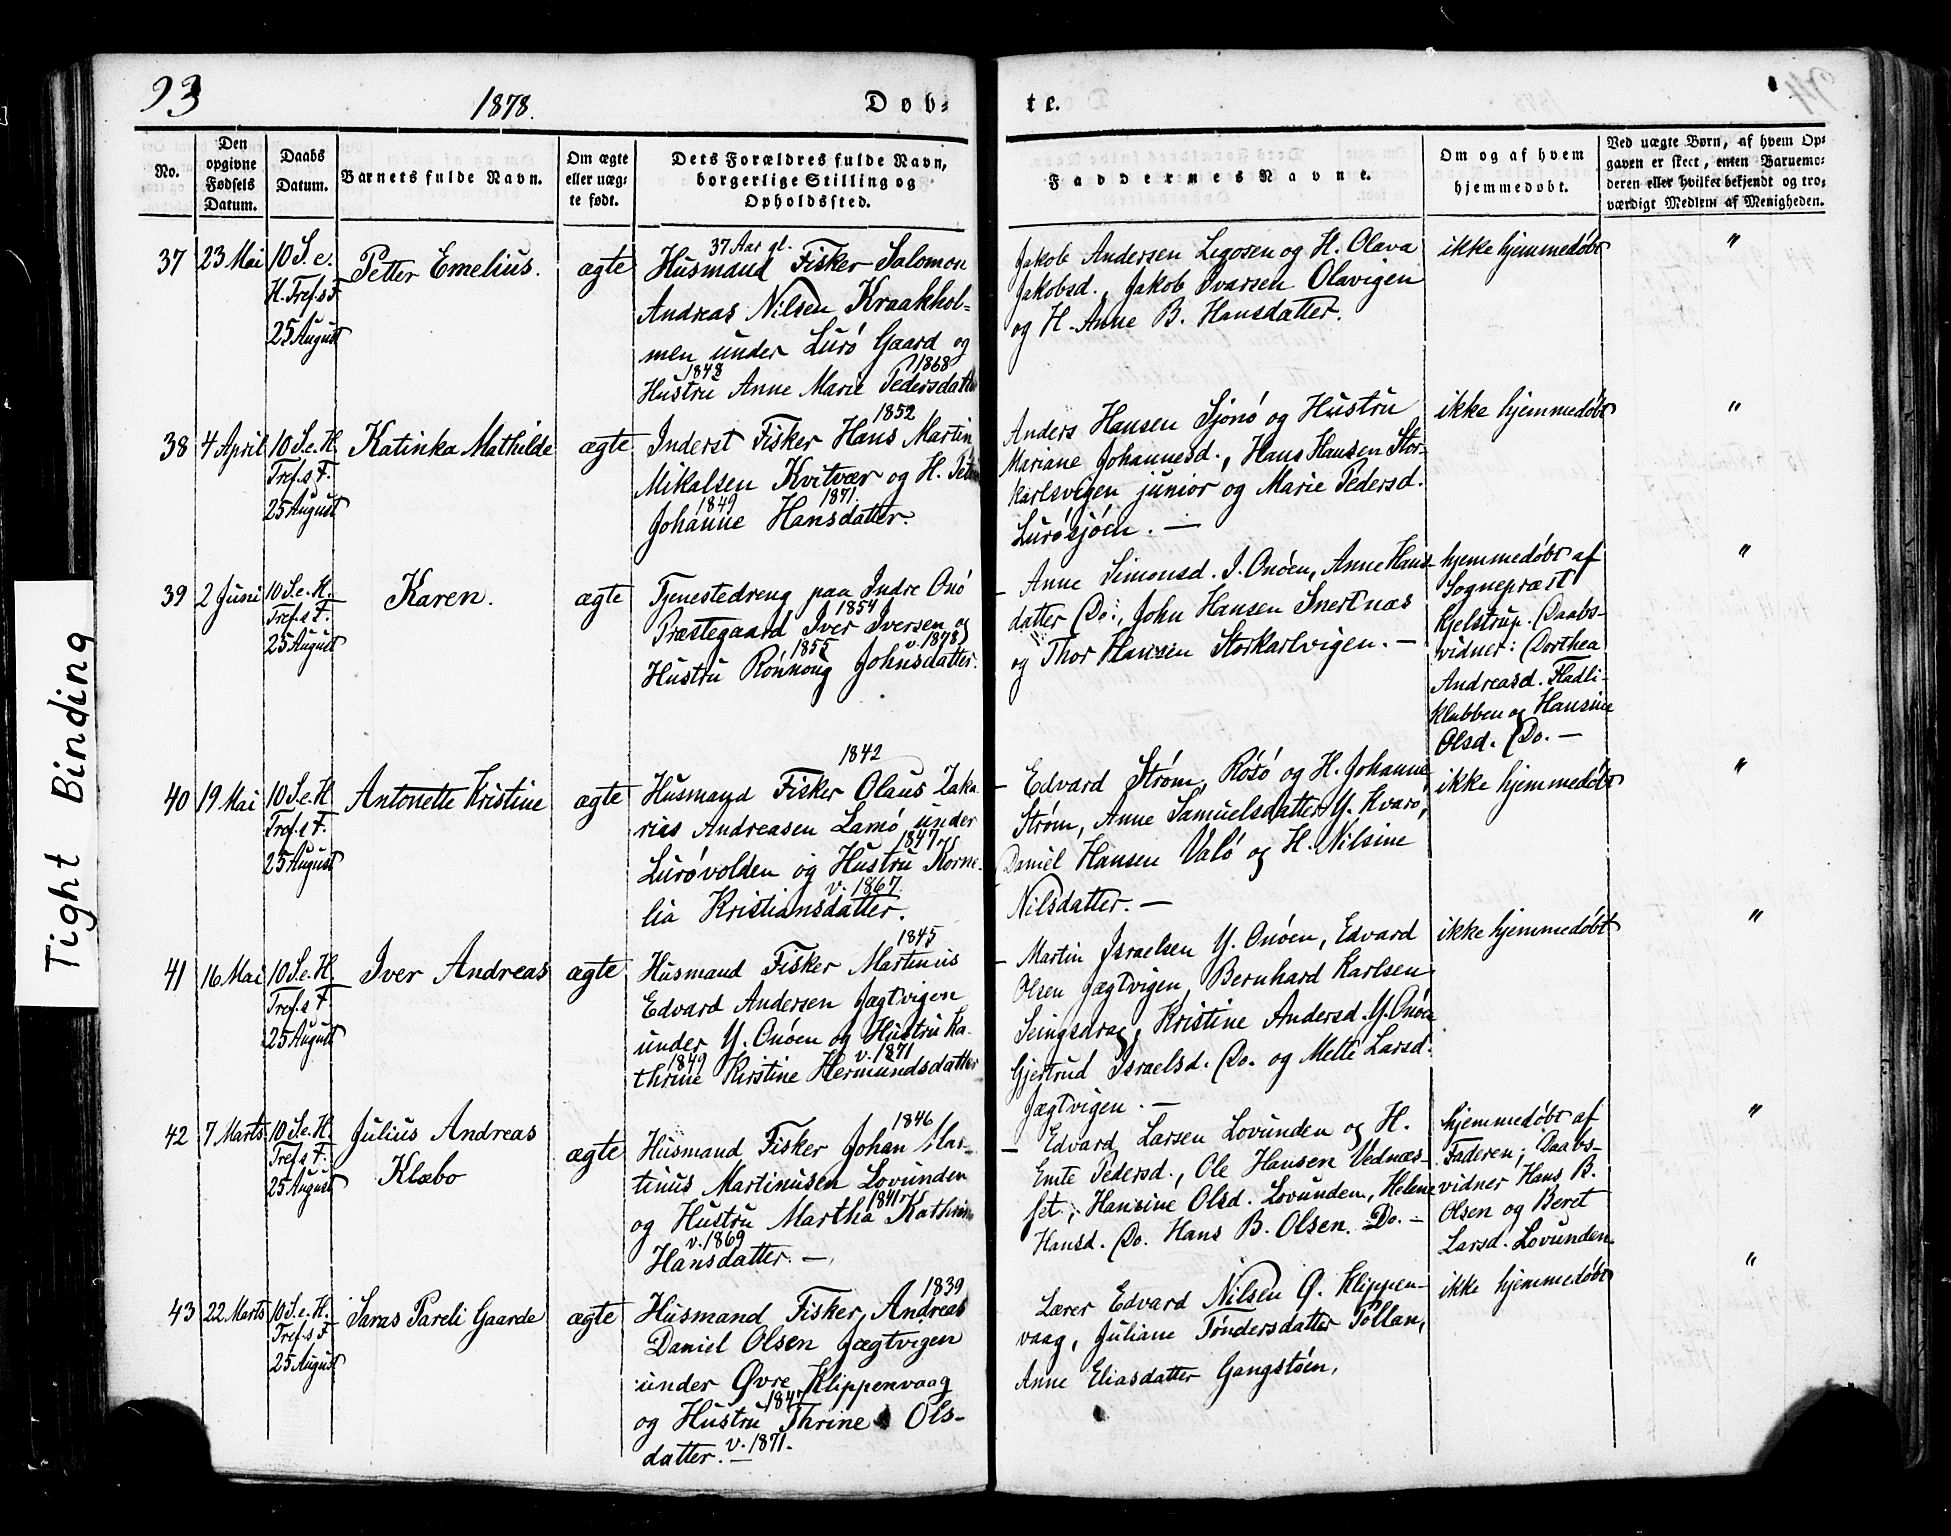 93
1878.
Døb-
te.
No.
Den opgivne Fødsels Datum.
Daabs Datum.
Barnets fulde Navn.
Om ægte eller uæg-te født.
Dets Forældres fulde Navn, borgerlige Stilling og Opholdssted.
Faddernes Navne.
Om og af hvem hjemmedøbt.
Ved uægte Børn, af hvem Op-gaven er skeet, enten Barnemo-deren eller hvilket bekjendt og tro-værdigt Medlem af Menigheden.
37
23 Mai
10 S. e.
H. Tref. s F
25 August
Petter Emelius.
ægte
37 Aar gl.
Husmand Fisker Salomon
Andreas Nilsen Kraakhol-
men under Lurö Gaard og
1848 1868
Hustru Anne Marie Pedersdatte
Jakob Andersen Legosen og H. Olava
Jakobsd., Jakob Ivarsen Olavigen
og H. Anne B. Hansdatter.
ikke hjemmedøbt
"
38
4 April
10 S. e. H.
Tref. s F.
25 August
Katinka Mathilde
ægte
1852
Inderst Fisker Hans Martin
Mikalsen Kvitvær og H. Petra
1849 1871.
Johanne Hansdatter.
Anders Hansen Sjonö og Hustru
Mariane Johannesd., Hans Hansen Stor-
karlsvigen junior og Marie Pedersd.
Lurösjöen. —
ikke hjemmedøbt
"
39
2 Juni
10 S. e. H.
Tref. s F.
25 August
Karen.
ægte
Tjenestedreng paa Indre Onö
1854
Præstegaard Iver Iversen og
1855 v. 1878
Hustru Rönnoug Johnsdatter.
— Anne Simonsd. I. Onöen, Anne Hans-
datter Do., John Hansen Snertnæs
og Thor Hansen Storkarlvigen. —
hjemmedøbt af
Sognepræst
Kjelstrup. Daabs-
vidner: Dorthea
Andreasd. Fladli-
klubben og Hansine
Olsd. Do. —
"
40
19 Mai
10 S. e. H
Tref. s F.
25 August
Antonette Kristine
ægte
1842
Husmand Fisker Olaus Zaka
rias Andreasen Lamö under
1847
Lurövolden og Hustru Korne-
v. 1867.
lia Kristiansdatter.
— Edvard Strøm, Rösö og H. Johanne
Strøm, Anne Samuelsdatter Y. Kvarö,
Daniel Hansen Valö og H. Nilsine
Nilsdatter. —
ikke hjemmedøbt
"
41
16 Mai
10 S. e. H.
Tref. s F
25 August
Iver Andreas
ægte
1845
Husmand Fisker Martinus
Edvard Andersen Jægtvigen
under Y. Onöen og Hustru Ka-
1849 v. 1871
thrine Kirstine Hermundsdatter
— Martin Israelsen Y. Onöen, Edvard
Olsen Jægtvigen, Bernhard Karlsen
Seingsdrag, Kristine Andersd. Y. Onöen
Gjertrud Israelsd. Do. og Mette Larsd.
Jægtvigen. —
ikke hjemmedøbt
"
42
7 Marts
10 S. e. H.
Tref. s F.
25 August
Julius Andreas
Klæbo
ægte
1846
Husmand Fisker Johan Mar-
tinus Martinusen Lovunden
1841
og Hustru Martha Kathrine
v. 1869
Hansdatter. —
— Edvard Larsen Lovunden og H.
Emte Pedersd., Ole Hansen Vednæs-
set, Hansine Olsd. Lovunden, Helene
Hansd. Do. Hans B. Olsen. Do. —
hjemmedøbt af
Faderen; Daabs-
vidner Hans B.
Olsen og Beret
Larsd. Lovunden.
"
43
22 Marts
10 S. e. H.
Tref. s F
25 August
Saras Pareli Gaarde
ægte
1839
Husmand Fisker Andreas
Daniel Olsen Jægtvigen
under Øvre Klippenvaag
1847
og Hustru Thrine Ols-
datter. v. 1871. —
Lærer Edvard Nilsen Ö. Klippen-
vaag, Juliane Tøndersdatter Tollan,
Anne Eliasdatter Gangstöen,
ikke hjemmedøbt
"
Tight Binding